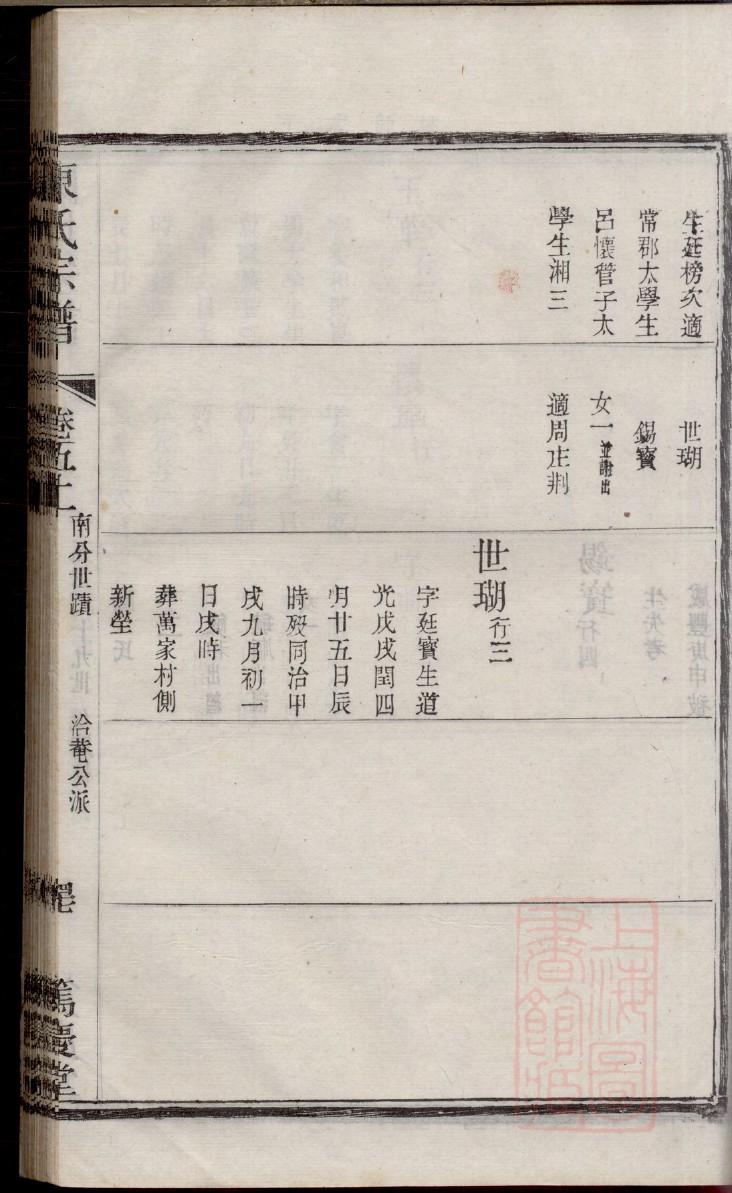 生廷榜次適
常郡太學生
呂懷管子太
學生湘三
世瑚
錫寶
女一並謝出
適周庄荆
世瑚行三
字廷寶生道
光戊戌閏四
月廿五日辰
時歿同治甲
戌九月初一
日戌時
葬萬家村側
新塋
陳氏宗譜
卷五十
南分世蹟
洽菴公派
篤慶堂
上海圖
書館藏